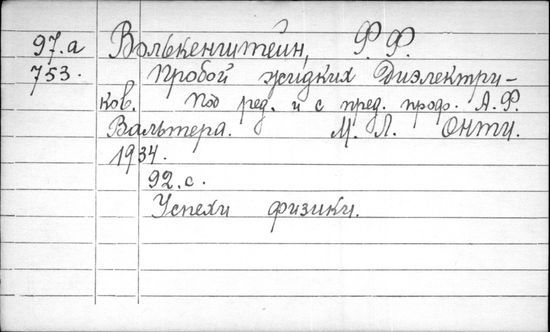 97.а Волькенштейн, Ф. Ф.
753. Пробой жидких Диэлектри-
ков. Под ред. и с пред. проф. А.Ф.
Вальтера. М. Л. ОНТИ.
1934.
92.с.
Успехи физики.